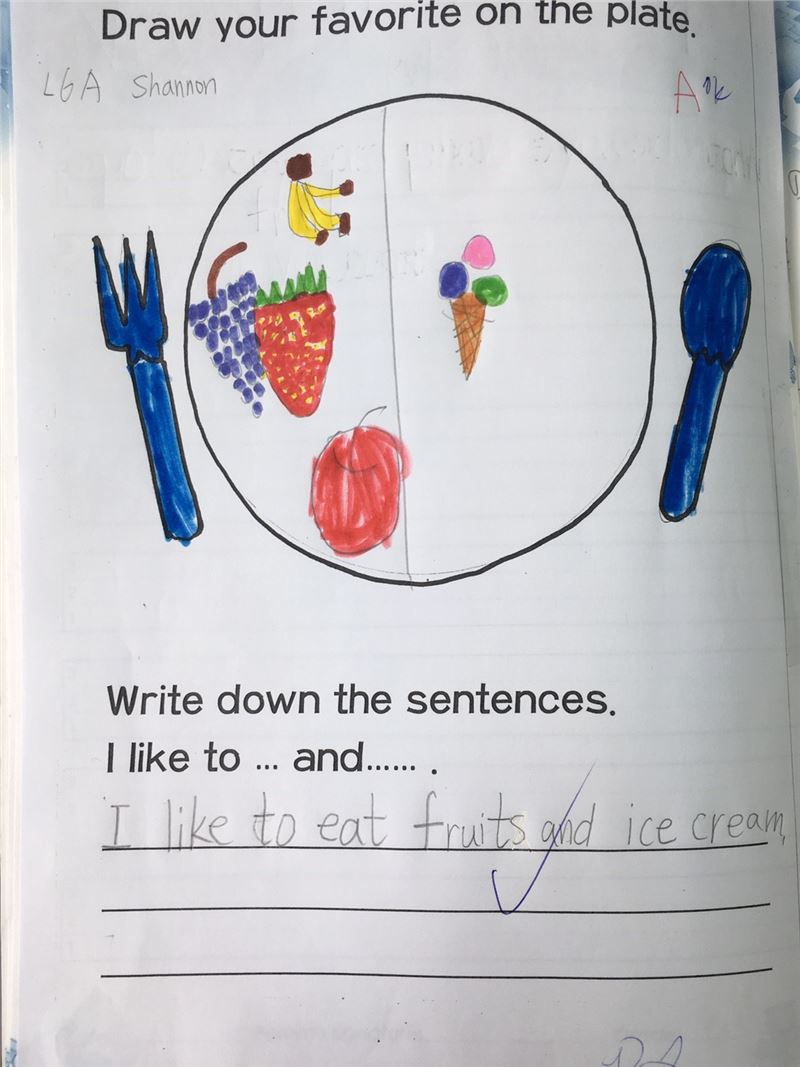 Draw your favorite on the plate.
L6A Shannon
A
Write down the sentences.
I like to ... and...... .
I like to eat fruits and ice cream.